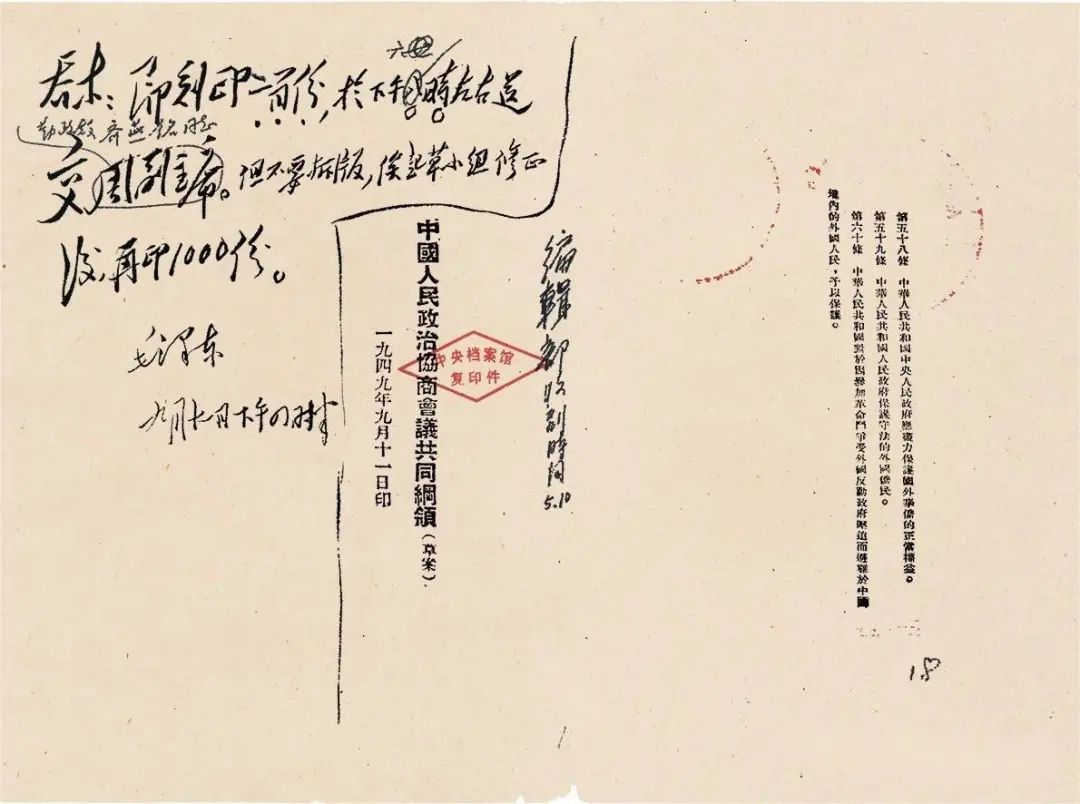 乔木：即刻印二百份，於下午六時左右送
勤政殿齊燕銘同志
交周副主席。但不要拆版，俟起草小组修正
後再印1000份。
毛泽东
九月十一日下午
編輯部收到時间
5.10
中國人民政治協商會議共同綱領（草案）
一九四九年九月十一日印
中央档案馆
复印件
第五十八條　中華人民共和國中央人民政府應盡力保護國外華僑的正當權益。
第五十九條　中華人民共和國人民政府保護守法的外國僑民。
第六十條　中華人民共和國對於因參加革命鬥爭受外國反動政府壓迫而避難於中國
境內的外國人民，予以保護。
18